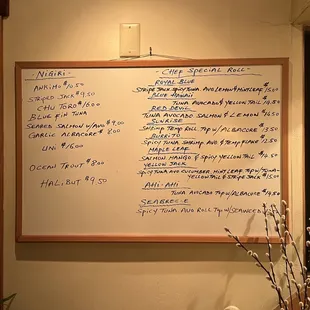 - Nigiri -
Ankimo $10.50
Striped Jack $9.50
Chu Toro $16.00
Blue Fin Tuna
Seared Salmon w/Avo $9.00
Garlic Albacore $8.00
Uni $16.00
Ocean Trout $8.00
Halibut $9.50
- Chef Special Roll -
Royal Blue
Stripe Jack Spicy Tuna Avo Lemon & Mint Leaf
Blue Hawaii
Tuna Avocado & Yellow Tail
Red Devil
Tuna Avocado Salmon & Lemon
Sunrise
Shrimp Temp Roll Top w/ Albacore
Burrito
Spicy Tuna Shrimp Avo & Temp Flake
Maple Leaf
Salmon Mango & Spicy Yellow Tail
Yellow Jack
Spicy Tuna Avo Cucumber Mint Leaf Top w/ Tuna
Yellow Tail & Stripe Jack
Ahi-Ahi
Tuna Avocado Top w/ Albacore
Spicy Tuna Avo Roll Top w/ Seaweed